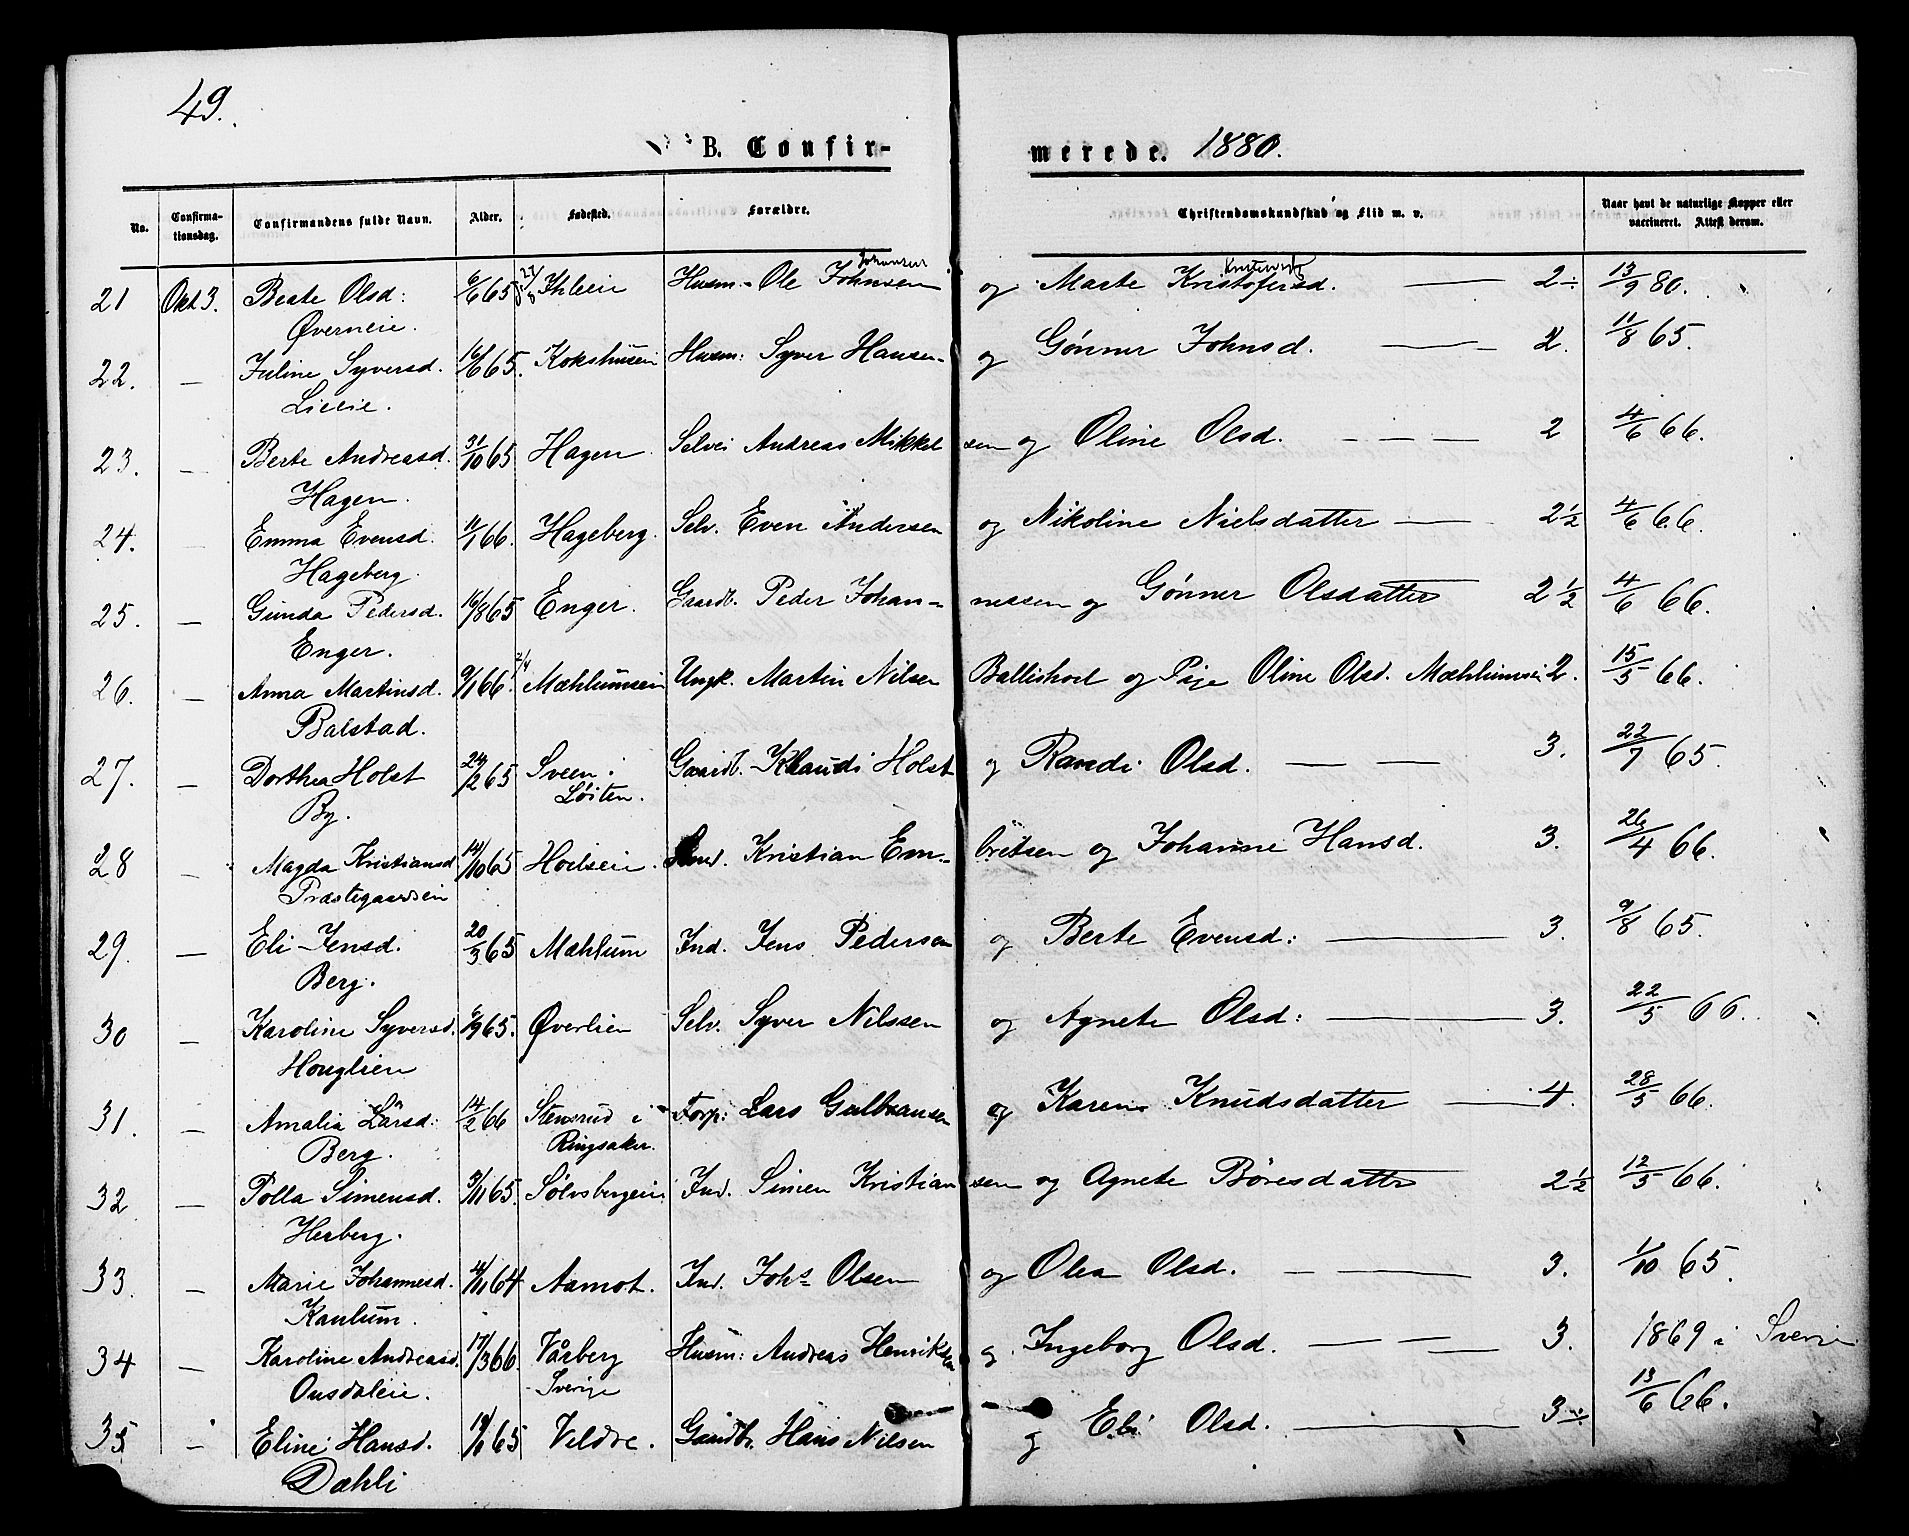 49.
B. Confirmerede. 1880.
No. Confirmationsdag. Confirmandens fulde Navn. Alder. Fødested. Forældre. Christendomskundskab og Flid m. v. Naar havt de naturlige Kopper eller vaccineret. Attest derom.
21 Okt 3. Berte Olsd: 6/6 65 Ihleie Husm. Ole Johnsen Johansen og Marte Kristofersd. — 2÷ 13/9 80.
Øverneie.
22. — Juline Syversd. 16/6 65. Kokshuseie Husm: Syver Hansen og Gønner Johnsd. — 2. 11/8 65.
Lilleie.
23. — Berte Andreasd. 31/10 65 Hagen. Selvei Andreas Mikkelsen og Oline Olsd. — — — 2 4/6 66.
Hagen.
24. Emma Evensd. 11/1 66. Hageberg. Selv. Even Andersen og Nikoline Nielsdatter — — 2½ 4/6 66.
Hageberg.
25. — Gunda Pedersd. 16/8 65 Enger. Gaardb. Peder Johannessen og Gønner Olsdatter 2½ 4/6 66.
Enger.
26. — Anna Martinsd. 9/1 66. Mæhlumseie Ungk. Martin Nilsen Balliskoel og Pige Oline Olsd. Mæhlumsei 2. 15/5 66.
Balstad.
27. — Dorthea Holst 24/2 65 Sveen i Gaardb. Klaudi Holst og Randi Olsd. — — 3. 22/7 65.
By. Løiten.
28 — Magda Kristiansd 14/10 65 Hoelseie. Kristian Embretsen og Johanne Hansd. 3. 26/4 66.
Præstegaardseie
29. — Eli Jensd. 20/3 65 Mæhlum Ind. Jens Pedersen og Berte Evensd: — 3. 9/8 65.
Berg.
30 — Karoline Syversd. 6/9 65. Øverlien Selv. Syver Nilssen og Agnete Olsd: — 3. 22/5 66.
Honglien
31. — Amalia Larsd. 14/2 66 Stensrud i Forp: Lars Gulbransen og Karen Knudsdatter — 4. 28/5 66.
Berg. Ringsaker.
32 — Polla Simensd. 3/11 65. Solvsbergeie Ind. Simen Kristiansen og Agnete Børesdatter 2½ 12/5 66.
Herberg.
33. — Marie Johannesd. 4/11 64 Aamot. Ind. Johs Olsen og Olea Olsd. — — 3. 1/10 65.
Kanlum.
34 — Karoline Andreasd. 17/3 66 Vårberg Husm: Andreas Henriksen og Ingeborg Olsd. — — 3. 1869 i Sverje
Onsdaleie. Sverige
35 — Eline Hansd. 65 Veldre. Gaardbr. Hans Nilsen og Eli Olsd. — 3÷ 13/6 66.
Dæhli